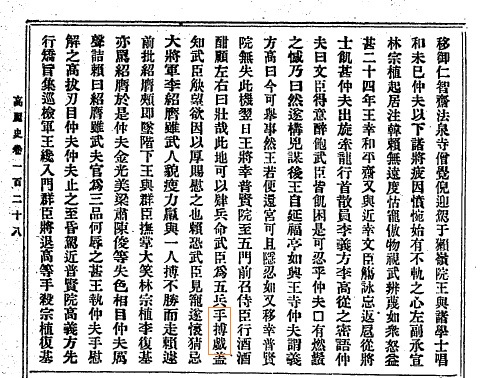 移御仁智齋法泉寺僧覺倪迎駕于獺嶺院王與諸學士唱
和未已仲夫以下諸將疲困憤惋始有不軌之心左副承宣
林宗植起居注韓賴無遠度怙寵傲物視武弁蔑如衆怒益
甚二十四年王幸和平齋又與近幸文臣觴詠忘返扈從將
士飢甚仲夫出旋牽龍行首散員李義方李高從之密語仲
夫曰文臣得意醉飽武臣皆飢困是可忍乎仲夫有燃鬚
之憾乃曰然遂構兇謀後王自延福亭如興王寺仲夫謂義
方高曰今可擧事然王若便還宮可且隱忍如又移幸普賢
院無失此機翌日王將幸普賢院至五門前召侍臣行酒酒
酣顧左右曰壯哉此地可以肄兵命武臣爲五兵手搏戲盖
知武臣觖望欲因以厚賜慰之也賴恐武臣見寵遂懷猜忌
大將軍李紹膺雖武人貌瘦力羸與一人搏不勝而走賴遽
前批紹膺頰卽墜階下王與群臣撫掌大笑林宗植李復基
亦罵紹膺於是仲夫金光美梁肅陳俊等失色相目仲夫厲
聲詰賴曰紹膺雖武夫官爲三品何辱之甚王執仲夫手慰
解之高拔刃目仲夫仲夫止之至昏駕近普賢院高義方先
行矯旨集巡檢軍王纔入門群臣將退高等手殺宗植復基
高麗史卷一百二十八